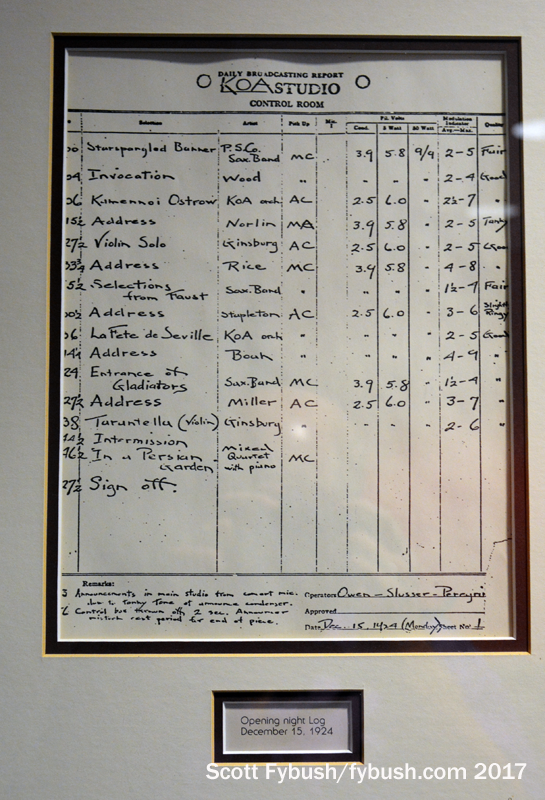 DAILY BROADCASTING REPORT
KOA STUDIO
CONTROL ROOM
Selection Artist Pick Up Mic. Fil. Volts Modulation Indicator Quality
Cond. 5 Watt 50 Watt Avg.—Max.
00 Starspangled Banner P.S.Co. Sax. Band MC 3.9 5.8 9/9 2-5 Fair
04 Invocation Wood " " " " 2-4 Good
06 Kamennoi Ostrow KOA orch AC 2.5 6.0 " 2½-7 "
15½ Address Norlin MA 3.9 5.8 " 2-5 Tanky
27½ Violin Solo Ginsburg AC 2.5 6.0 " 2-5 Good
33¾ Address Rice MC 3.9 5.8 " 4-8 "
5½ Selections from Faust Sax. Band " " " " 1½-7 Fair
00½ Address Stapleton AC 2.5 6.0 " 3-6 Slightly Ringy
06 La Fete de Seville KOA orch " " " " 2-5 Good
14½ Address Bouh " " " " 4-9 "
24 Entrance of Gladiators Sax. Band MC 3.9 5.8 " 1½-4 "
27½ Address Miller AC 2.5 6.0 " 3-7 "
38 Tarantella (Violin) Ginsburg " " " " 2-6 "
44½ Intermission
46½ In a Persian Garden Mixed Quartet with piano MC
27½ Sign off.
Remarks:
Announcements in main studio from concert mic.
due to tanky tone of announce condenser.
Control bus thrown off 2 sec. Announcer
mistook rest period for end of piece.
Operators Owen - Slusser - Peregrine
Approved
Date Dec. 15, 1924 (Monday) Sheet No. 1
Opening night Log
December 15, 1924
Scott Fybush/fybush.com 2017